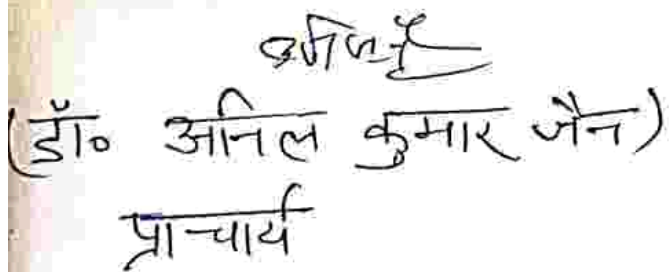 (डॉ० अनिल कुमार जैन)
प्राचार्य